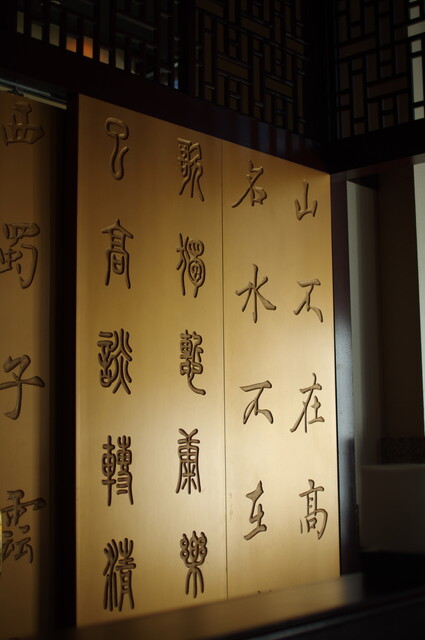 山不在高
名水不在
歌獨慙康樂
已高談轉清
西蜀子雲